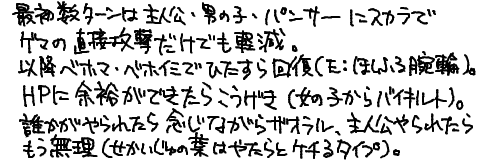 最初数ターンは主人公・男の子・パンサーにスカラで
ゲマの直接攻撃だけでも軽減。
以降ベホマ・ベホイミでひたすら回復(た:ほしふる腕輪)。
HPに余裕ができたらこうげき(女の子からバイキルト)。
誰かがやられたら念じながらザオラル、主人公やられたら
もう無理(せかいじゅの葉はやたらとケチるタイプ)。